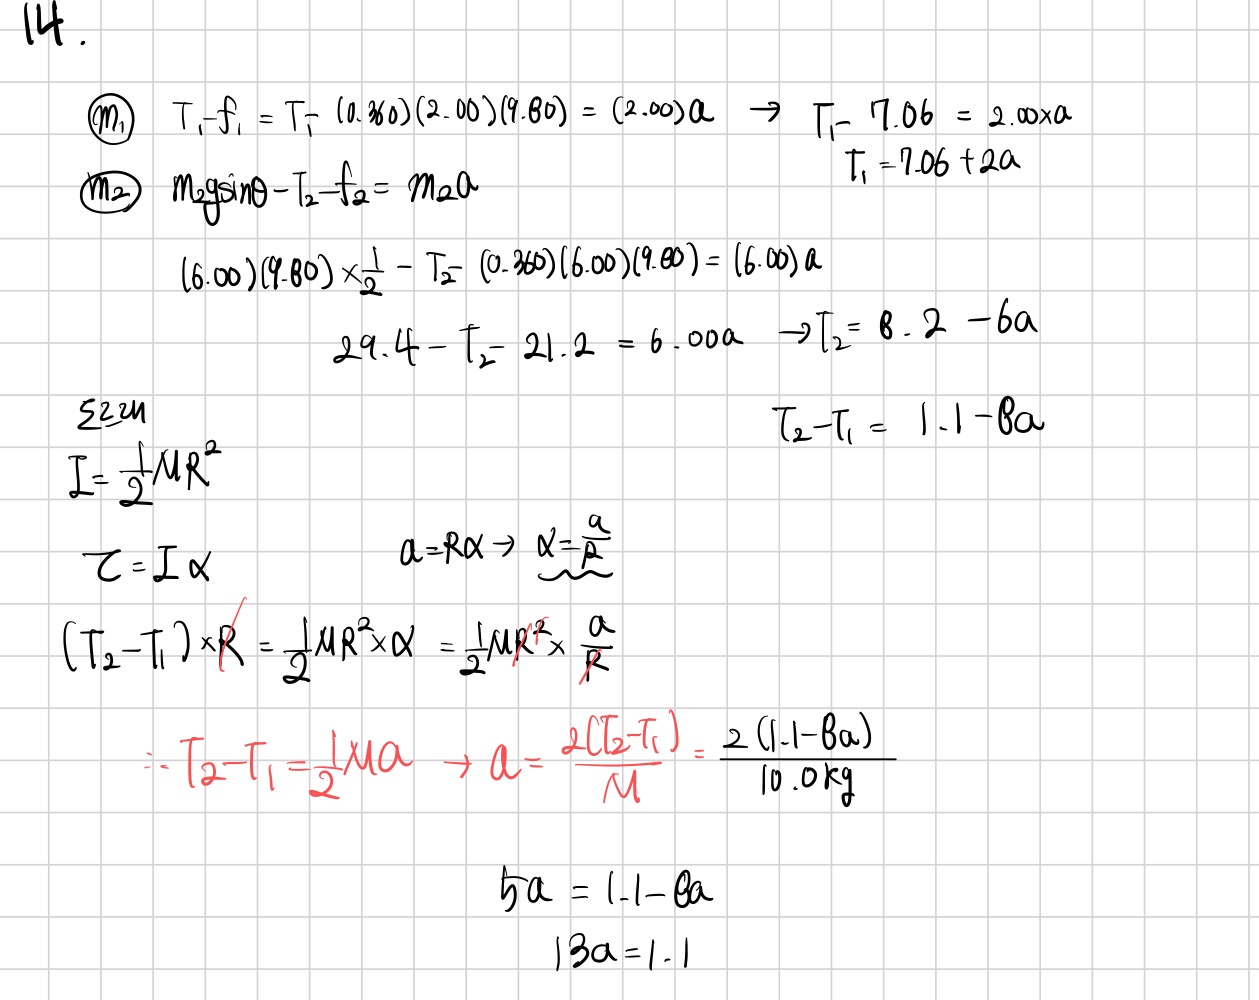 14.
m₁ T₁-f₁ = T₁- (0.360)(2.00)(9.80) = (2.00)a → T₁- 7.06 = 2.00×a
T₁ = 7.06 + 2a
m₂ m₂gsinθ - T₂ - f₂ = m₂a
(6.00)(9.80) × 1/2 - T₂ - (0.360)(6.00)(9.80) = (6.00)a
29.4 - T₂ - 21.2 = 6.00a → T₂ = 8.2 - 6a
T₂-T₁ = 1.1 - 8a
도르래
I = 1/2 MR²
τ = Iα a = Rα → α = a/R
(T₂-T₁) × R = 1/2 MR² × α = 1/2 MR² × a/R
∴ T₂-T₁ = 1/2 Ma → a = 2(T₂-T₁)/M = 2(1.1-8a)/10.0kg
5a = 1.1 - 8a
13a = 1.1